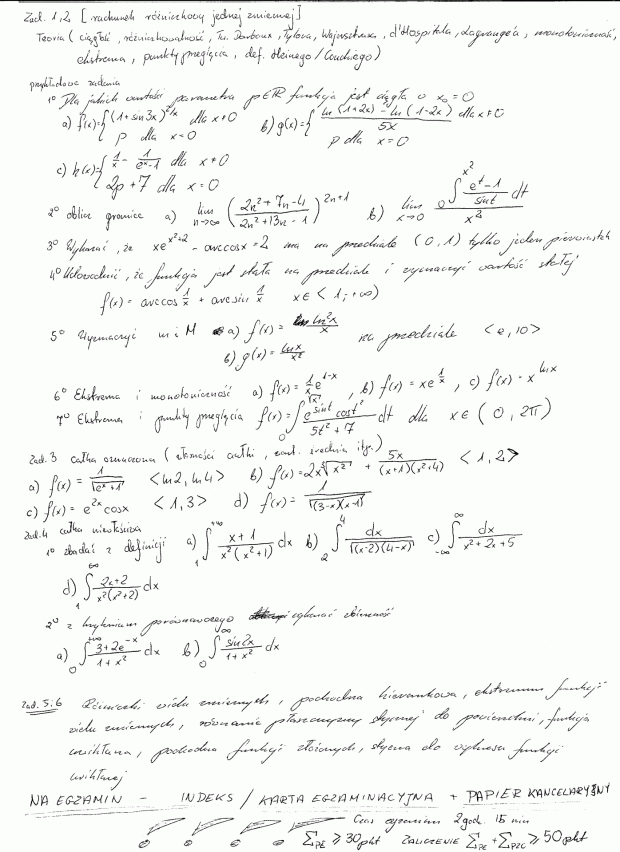 Zad. 1,2 [rachunek różniczkowy jednej zmiennej]
Teoria (ciągłość, różniczkowalność, Tw. Darboux, Tylora, Wajersztrasa, d'Hospitala, Lagrange'a, monotoniczność,
ekstrema, punkty przegięcia, def. Heinego/Cauchiego)
przykładowe zadania
1° Dla jakich wartości parametra p∈R funkcja jest ciągła w x₀=0
a) f(x)={(1+sin3x)^{2/x} dla x≠0 b) g(x)={(ln(1+2x) - ln(1-2x))/5x dla x≠0
p dla x=0 p dla x=0
c) h(x)={1/x - 1/(e^x-1) dla x≠0
2p+7 dla x=0
2° oblicz granice a) lim n→∞ ((2n²+7n-4)/(2n²+13n-1))^{2n+1} b) lim x→0 (₀∫^{x²} (e^t-1)/sint dt)/x²
3° Wykazać, że xe^{x²+2} - arccosx=2 ma na przedziale (0,1) tylko jeden pierwiastek
4° Udowodnić, że funkcja jest stała na przedziale i wyznaczyć wartość stałej
f(x) = arccos 1/x + arcsin 1/x x∈<1;+∞)
5° Wyznaczyć m i M a) f(x) = ln²x/x na przedziale <e,10>
b) g(x) = lnx/x²
6° Ekstrema i monotoniczność a) f(x) = 1/x e^{1-x}, b) f(x) = xe^{1/x}, c) f(x) = x^{lnx}
7° Ekstrema i punkty przegięcia f(x) = ₀∫^{√x} (e^{sint} cost²)/(5t²+7) dt dla x∈(0,2π)
Zad. 3 całka oznaczona (własności całki, zast. średnia itp.)
a) f(x) = 1/√(e^x+1) <ln2, ln4> b) f(x) = 2x∛(x²) + 5x/((x+1)(x²+4)) <1,2>
c) f(x) = e^{2x}cosx <1,3> d) f(x) = 1/√((3-x)(x-1))
Zad. 4 całka niewłaściwa
1° zbadać z definicji a) ₁∫^{+∞} (x+1)/(x²(x²+1)) dx b) ₂∫^4 dx/√((x-2)(4-x)) c) ₋∞∫^∞ dx/(x²+2x+5)
d) ₁∫^∞ (2x+2)/(x²(x²+2)) dx
2° z kryterium porównawczego wykazać zbieżność
a) ₀∫^{+∞} (3+2e^{-x})/(1+x²) dx b) ₀∫^∞ sin2x/(1+x²) dx
Zad. 5i6 Różniczki wielu zmiennych, pochodna kierunkowa, ekstremum funkcji
wielu zmiennych, równanie płaszczyzny stycznej do powierzchni, funkcja
uwikłana, pochodna funkcji złożonych, styczna do wykresu funkcji
uwikłanej
NA EGZAMIN - INDEKS / KARTA EGZAMINACYJNA + PAPIER KANCELARYJNY
Czas egzaminu 2 god 15 min
Σ_PE ≥ 30pkt ZALICZENIE Σ_PE + Σ_PZC ≥ 50pkt